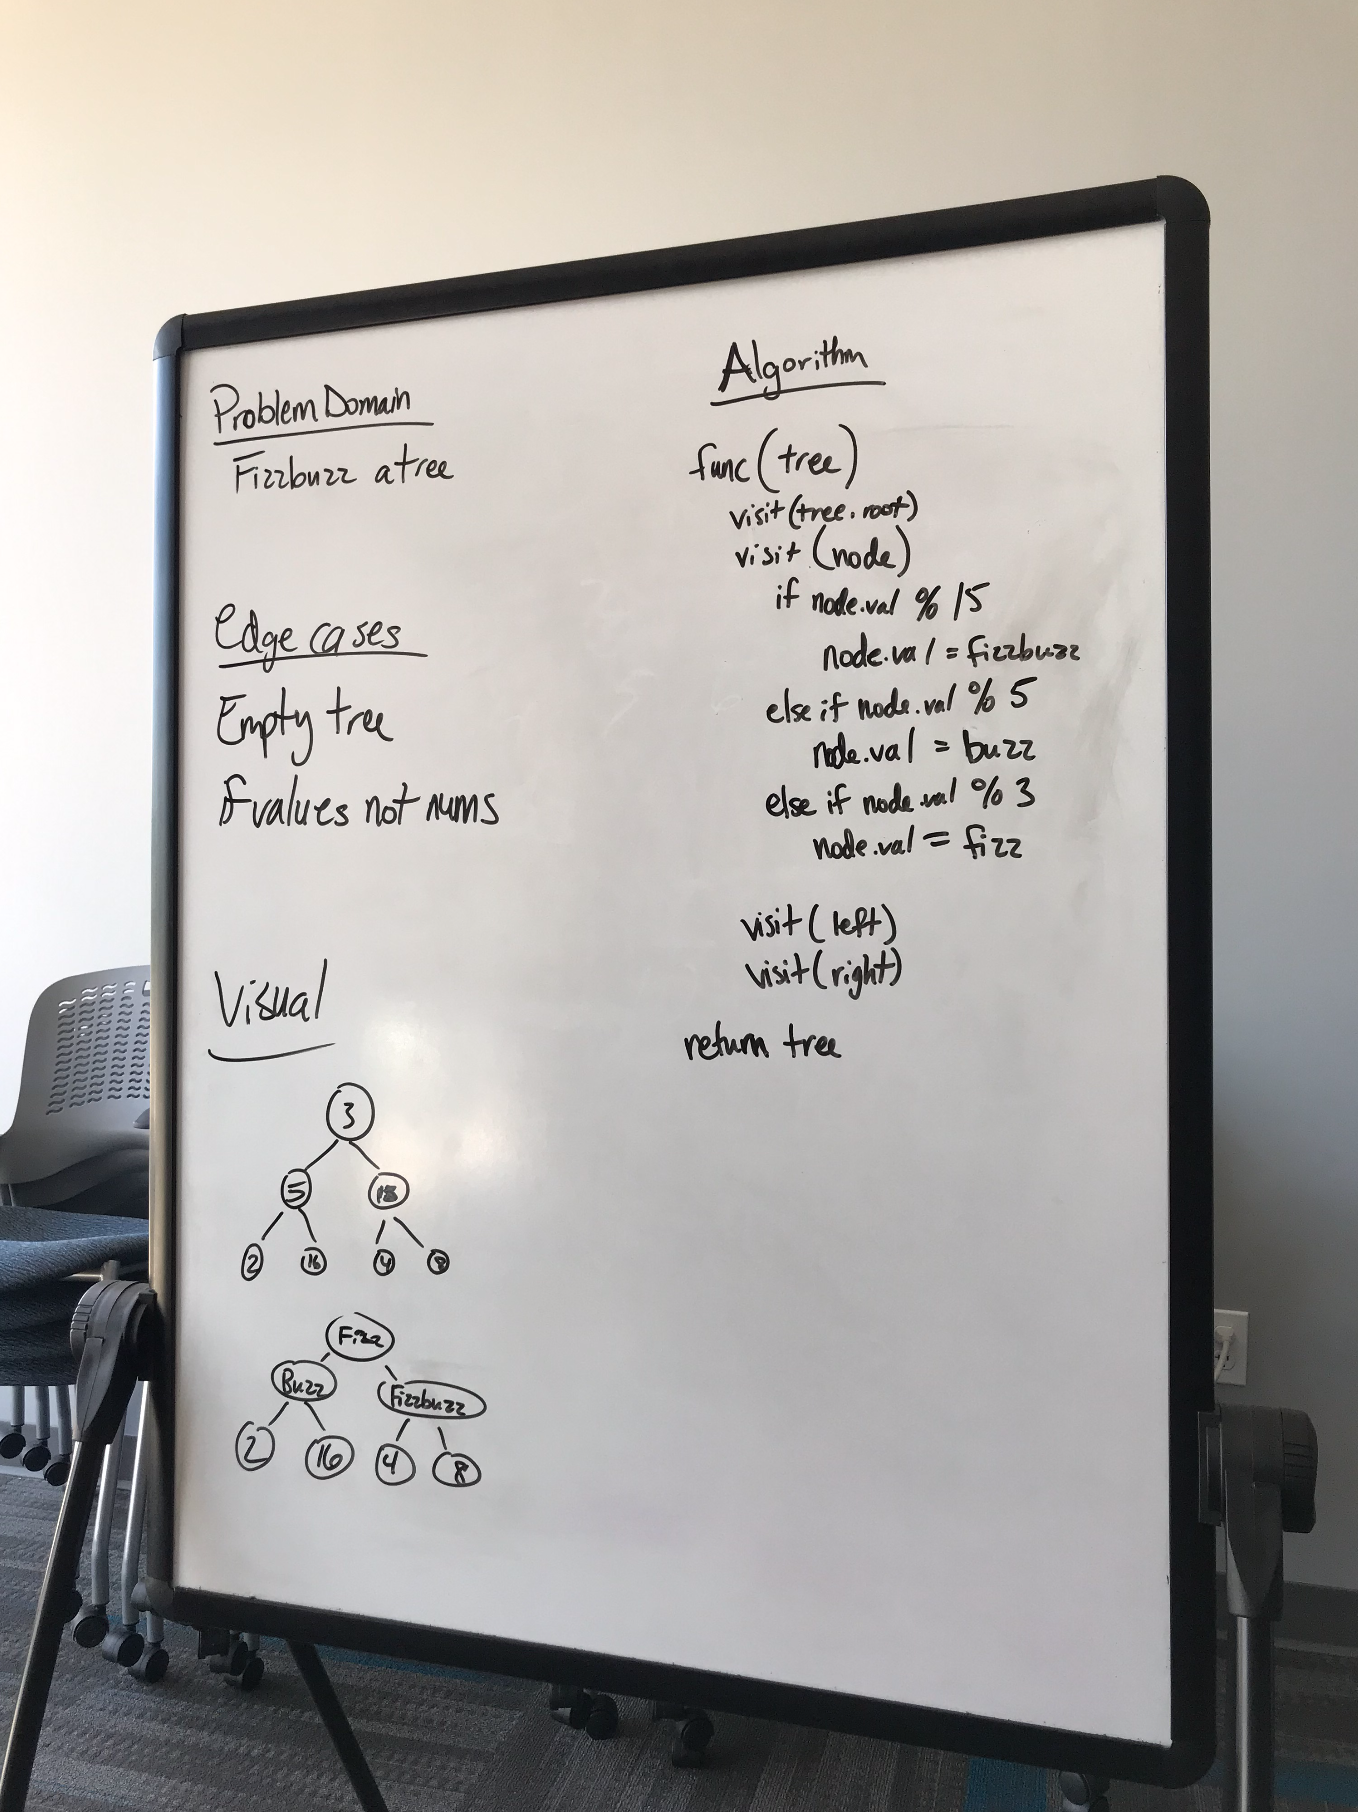 Problem Domain
Fizzbuzz a tree
Edge cases
Empty tree
if values not nums
Visual
3
5
2 16 4 8
Fizz
Buzz Fizzbuzz
2 16 4 8
Algorithm
func(tree)
visit(tree.root)
visit(node)
if node.val % 15
node.val = fizzbuzz
else if node.val % 5
node.val = buzz
else if node.val % 3
node.val = fizz
visit(left)
visit(right)
return tree